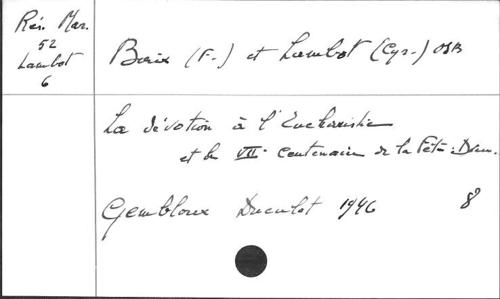 Rés. Mar.
52
Lambot
6
Baix (F.-) et Lambot (Cyr.-) OSB
La dévotion à l'Eucharistie
et le VIIe centenaire de la Fête-Dieu.
Gembloux Duculot 1946 8